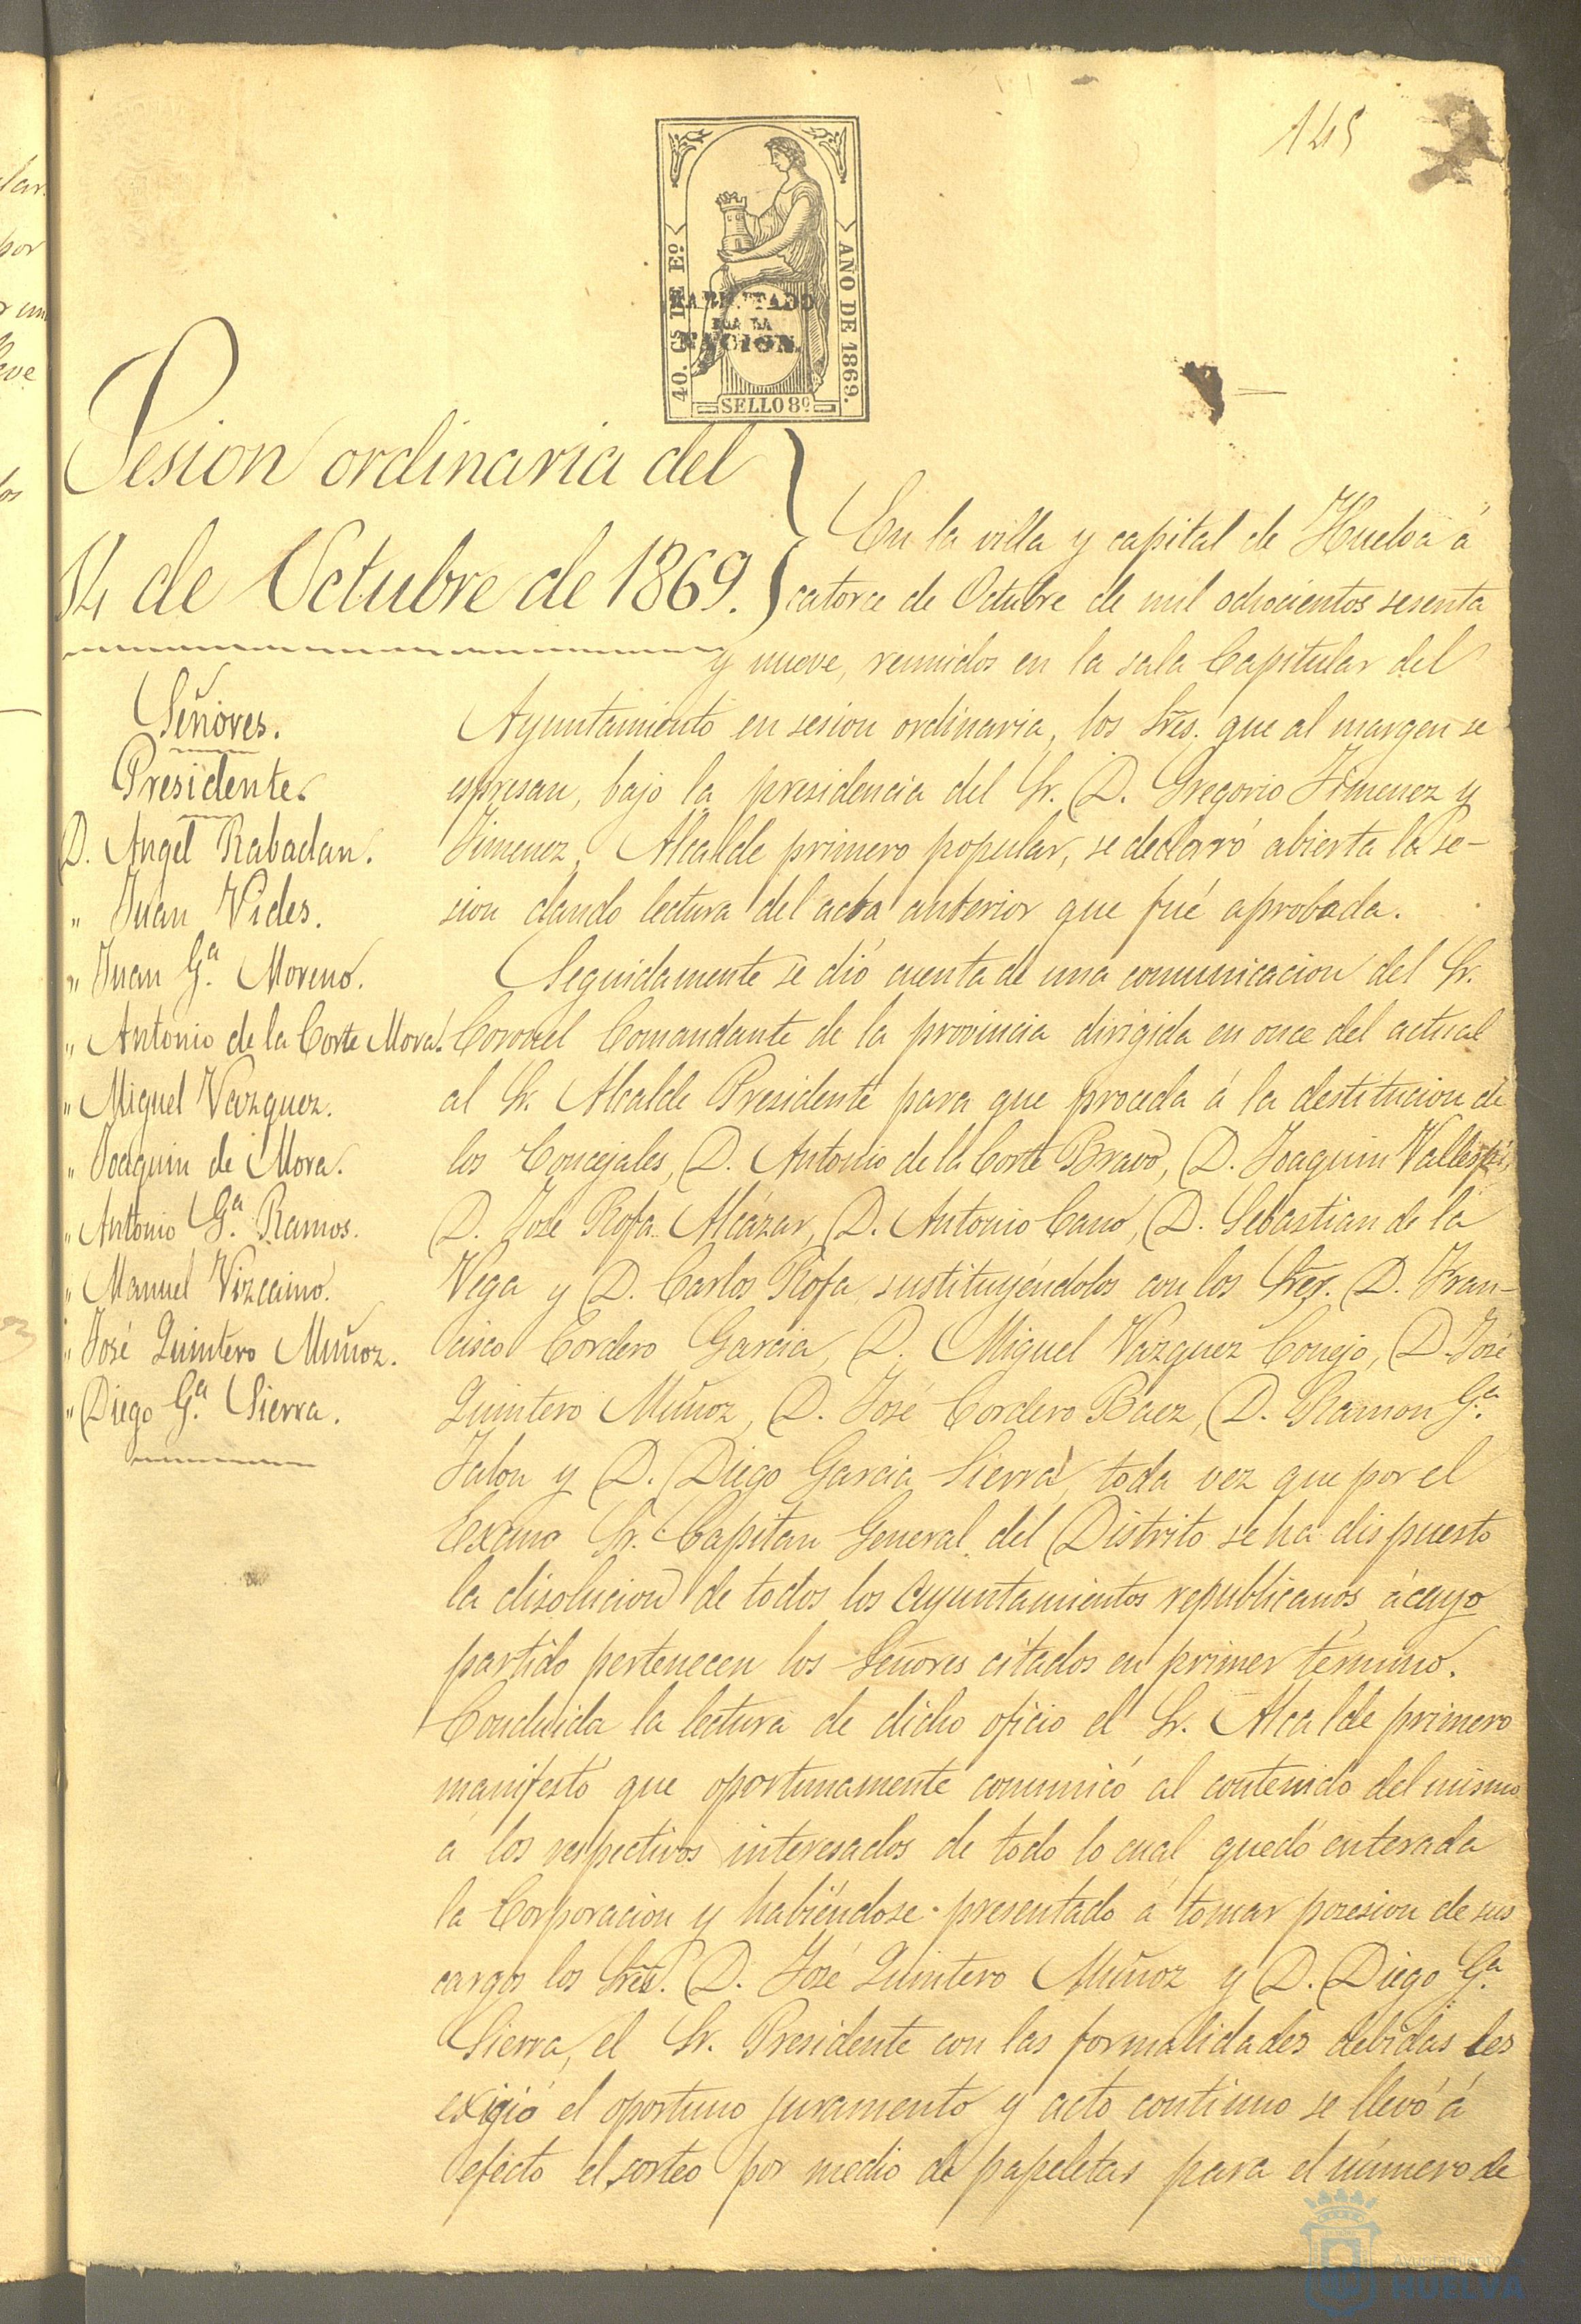 145
40. CS DE Eº
AÑO DE 1869.
HABILITADO
POR LA
NACION.
SELLO 8º
Sesion ordinaria del
14 de Octubre de 1869.
Señores.
Presidente.
D. Angel Rabadan.
" Juan Vides.
" Juan G.ª Moreno.
" Antonio de la Corte Mora.
" Miguel Vazquez.
" Joaquin de Mora.
" Antonio G.ª Ramos.
" Manuel Vizcaino.
" José Quintero Muñoz.
" Diego G.ª Sierra.
En la villa y capital de Huelva á
catorce de Octubre de mil ochocientos sesenta
y nueve, reunidos en la sala Capitular del
Ayuntamiento en sesion ordinaria, los Sres. que al margen se
espresan, bajo la presidencia del Sr. D. Gregorio Jimenez y
Jimenez, Alcalde primero popular, se declaró abierta la se-
sion dando lectura del acta anterior que fué aprobada.
Seguidamente se dió cuenta de una comunicacion del Sr.
Coronel Comandante de la provincia dirigida en once del actual
al Sr. Alcalde Presidente para que proceda á la destitucion de
los Concejales, D. Antonio de la Corte Bravo, D. Joaquin Vallespi,
D. José Rofa Alcázar, D. Antonio Cano, D. Sebastian de la
Vega y D. Carlos Rofa sustituyéndolos con los Sres. D. Fran-
cisco Cordero Garcia, D. Miguel Vazquez Conejo, D. José
Quintero Muñoz, D. José Cordero Baez, D. Ramon G.ª
Jalon y D. Diego Garcia Sierra, toda vez que por el
Excmo Sr. Capitan General del Distrito se ha dispuesto
la disolucion de todos los Ayuntamientos republicanos, á cuyo
partido pertenecen los Señores citados en primer término.
Concluida la lectura de dicho oficio el Sr. Alcalde primero
manifestó que oportunamente comunicó al contenido del mismo
a los respectivos interesados de todo lo cual quedó enterada
la Corporacion y habiéndose presentado á tomar posesion de sus
cargos los Sres. D. José Quintero Muñoz y D. Diego G.ª
Sierra, el Sr. Presidente con las formalidades debidas les
exigió el oportuno juramento y acto continuo se llevó á
efecto el sorteo por medio de papeletas para el número de
Ayuntamiento de
HUELVA